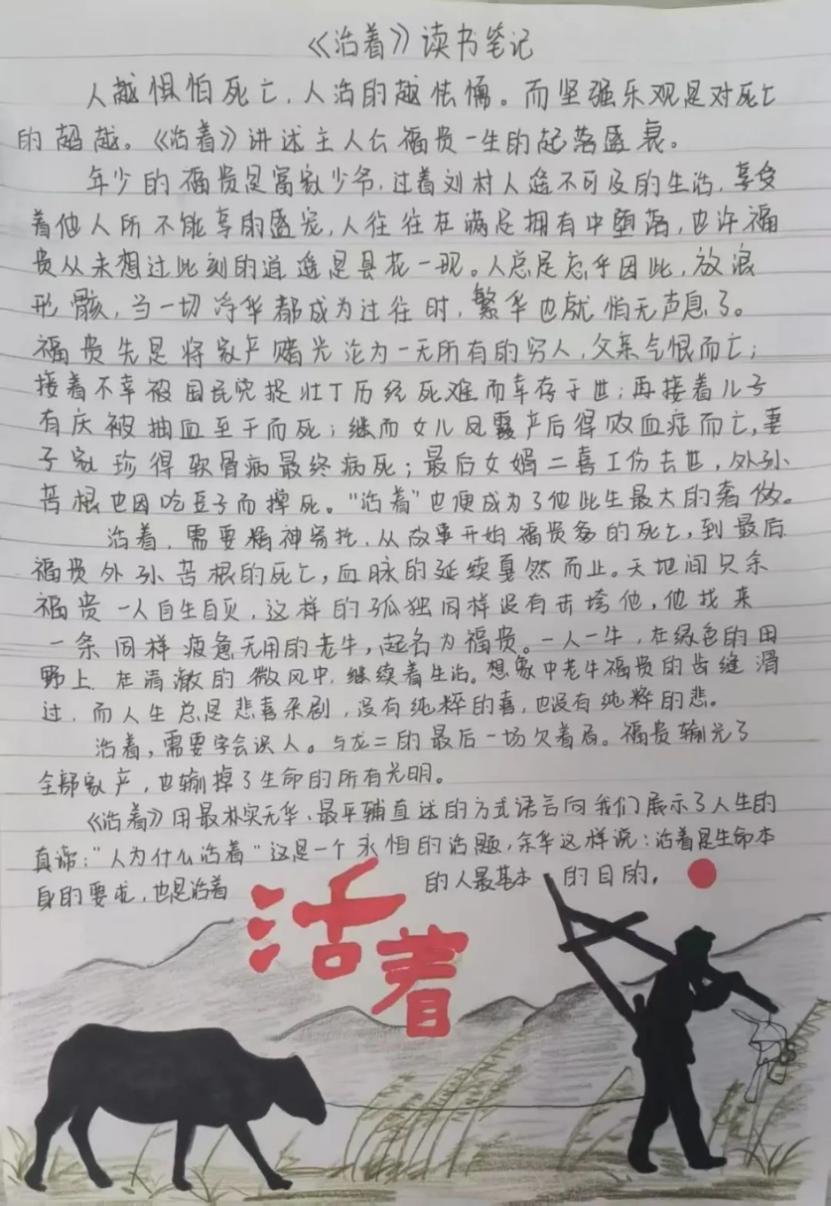 《活着》读书笔记
人越惧怕死亡，人活的越怯懦。而坚强乐观是对死亡
的超越。《活着》讲述主人公福贵一生的起落盛衰。
年少的福贵是富家少爷，过着刘村人遥不可及的生活，享受
着他人所不能享的盛宠，人往往在满足拥有中堕落，也许福
贵从未想过此刻的逍遥是昙花一现。人总是忘乎因此，放浪
形骸，当一切浮华都成为过往时，繁华也就悄无声息了。
福贵先是将家产赌光沦为一无所有的穷人，父亲气恨而亡；
接着不幸被国民党捉壮丁历经死难而幸存于世；再接着儿子
有庆被抽血至干而死；继而女儿凤霞产后得败血症而亡，妻
子家珍得软骨病最终病死；最后女婿二喜工伤去世，外孙
苦根也因吃豆子而撑死。“活着”也便成为了他此生最大的奢做。
活着，需要精神寄托，从故事开始福贵爹的死亡，到最后
福贵外孙苦根的死亡，血脉的延续戛然而止。天地间只余
福贵一人自生自灭，这样的孤独同样没有击垮他，他找来
一条同样疲惫无用的老牛，起名为福贵。一人一牛，在绿色的田
野上，在清澈的微风中，继续着生活。想象中老牛福贵的齿缝滑
过，而人生总是悲喜杂剧，没有纯粹的喜，也没有纯粹的悲。
活着，需要学会识人。与龙二的最后一场欠着局。福贵输光了
全部家产，也输掉了生命的所有光明。
《活着》用最朴实无华、最平铺直述的方式语言向我们展示了人生的
真谛：“人为什么活着”这是一个永恒的话题，余华这样说：活着是生命本
身的要求，也是活着的人最基本的目的。
活着